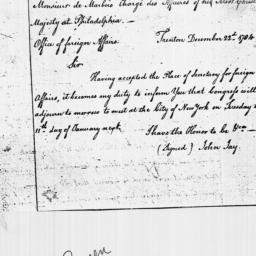 Monsieur de Marbois Chargé des Affaires of his Most Christian
Majesty at Philadelphia. —
Office of foreign Affairs. Trenton December 22d. 1784
Sir
Having accepted the Place of Secretary for foreign
Affairs, it becomes my duty to inform You that Congress will
adjourn to morrow to meet at the City of New York on Tuesday
11th day of January next.
I have the Honor to be &ca —
(signed) John Jay.